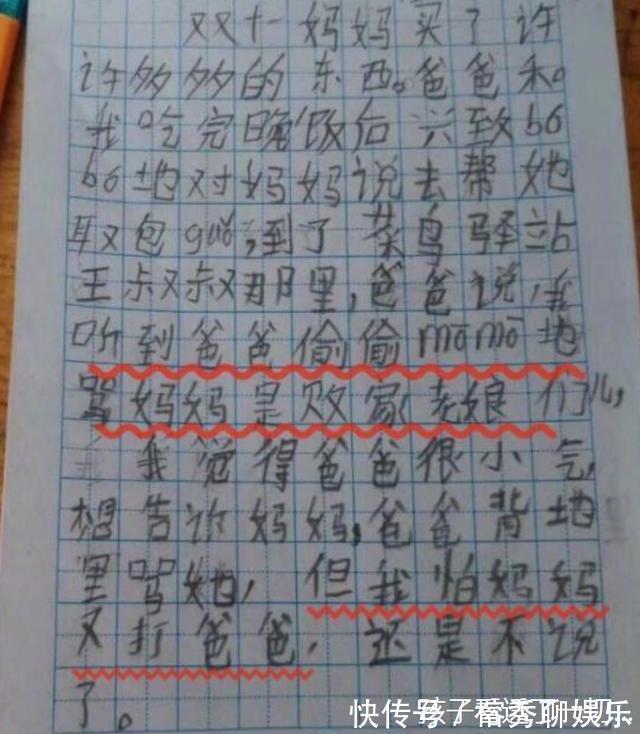 双十一妈妈买了许
许多多的东西。爸爸和
我吃完晚饭后兴致bó
bó地对妈妈说去帮她
取包guǒ,到了菜鸟驿站
王叔叔那里,爸爸说,我
听到爸爸偷偷mōmō地
骂妈妈是败家老娘们儿,
我觉得爸爸很小气,
想告诉妈妈,爸爸背地
里骂她,但我怕妈妈
又打爸爸,还是不说
了。
快传号/榴秀聊娱乐